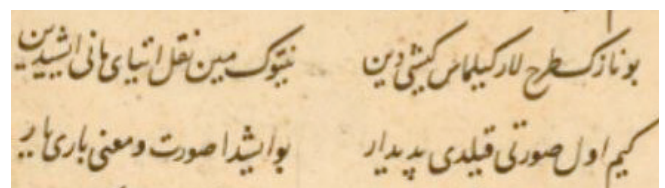 بو نازک طرح لار کیلماس کیشی دین نیتوک مین نقل ایتای مانی ایشیدین
کیم اول صورتی قیلدی پدیدار بو ایشدا صورت و معنی باری بار